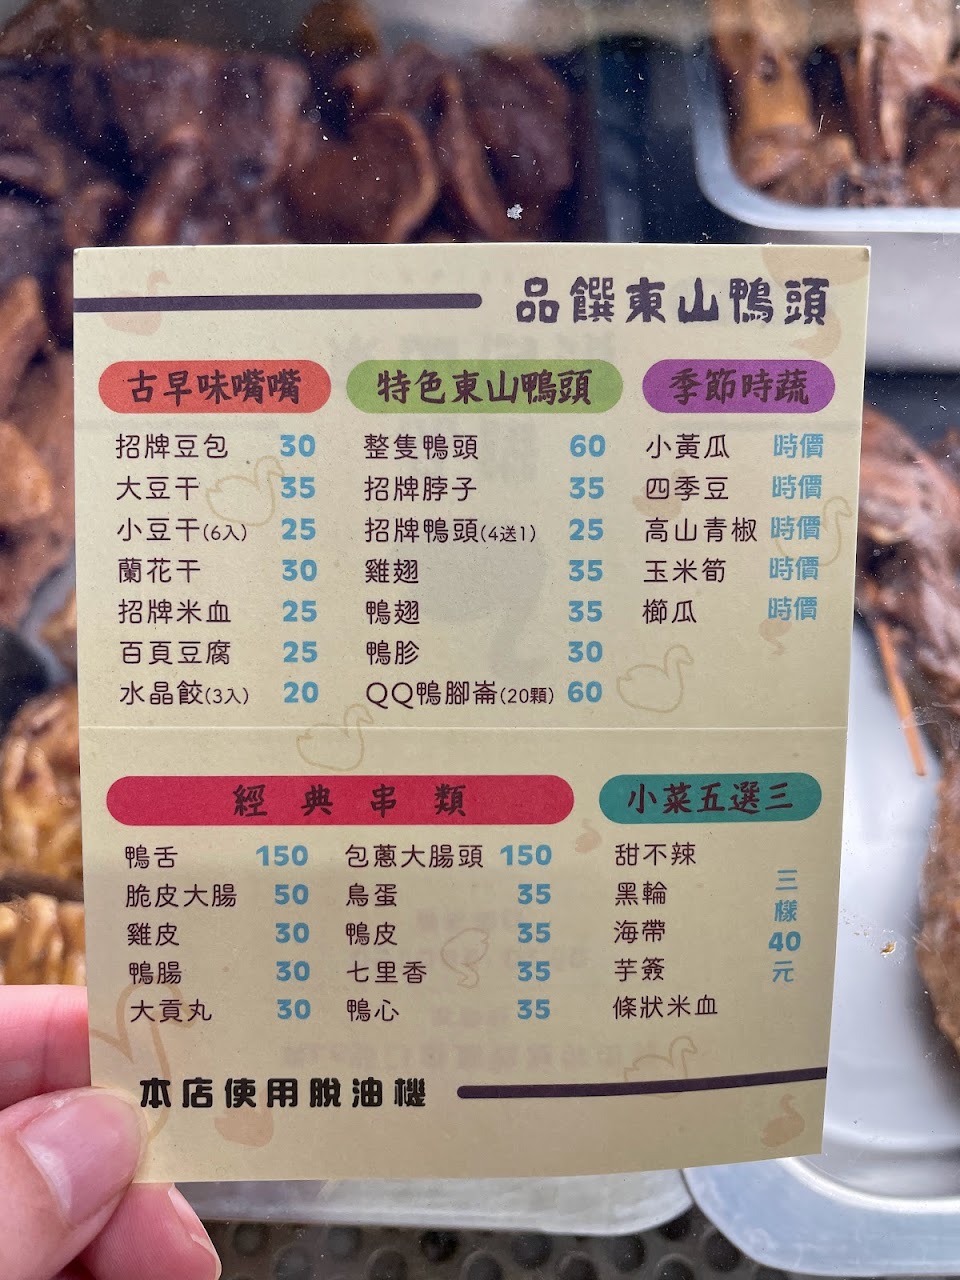 品饌東山鴨頭
古早味嘴嘴
招牌豆包 30
大豆干 35
小豆干(6入) 25
蘭花干 30
招牌米血 25
百頁豆腐 25
水晶餃(3入) 20
特色東山鴨頭
整隻鴨頭 60
招牌脖子 35
招牌鴨頭(4送1) 25
雞翅 35
鴨翅 35
鴨胗 30
QQ鴨腳崙(20顆) 60
季節時蔬
小黃瓜 時價
四季豆 時價
高山青椒 時價
玉米筍 時價
櫛瓜 時價
經典串類
鴨舌 150
脆皮大腸 50
雞皮 30
鴨腸 30
大貢丸 30
包蔥大腸頭 150
鳥蛋 35
鴨皮 35
七里香 35
鴨心 35
小菜五選三
甜不辣
黑輪
海帶
芋簽
條狀米血
三樣40元
本店使用脫油機